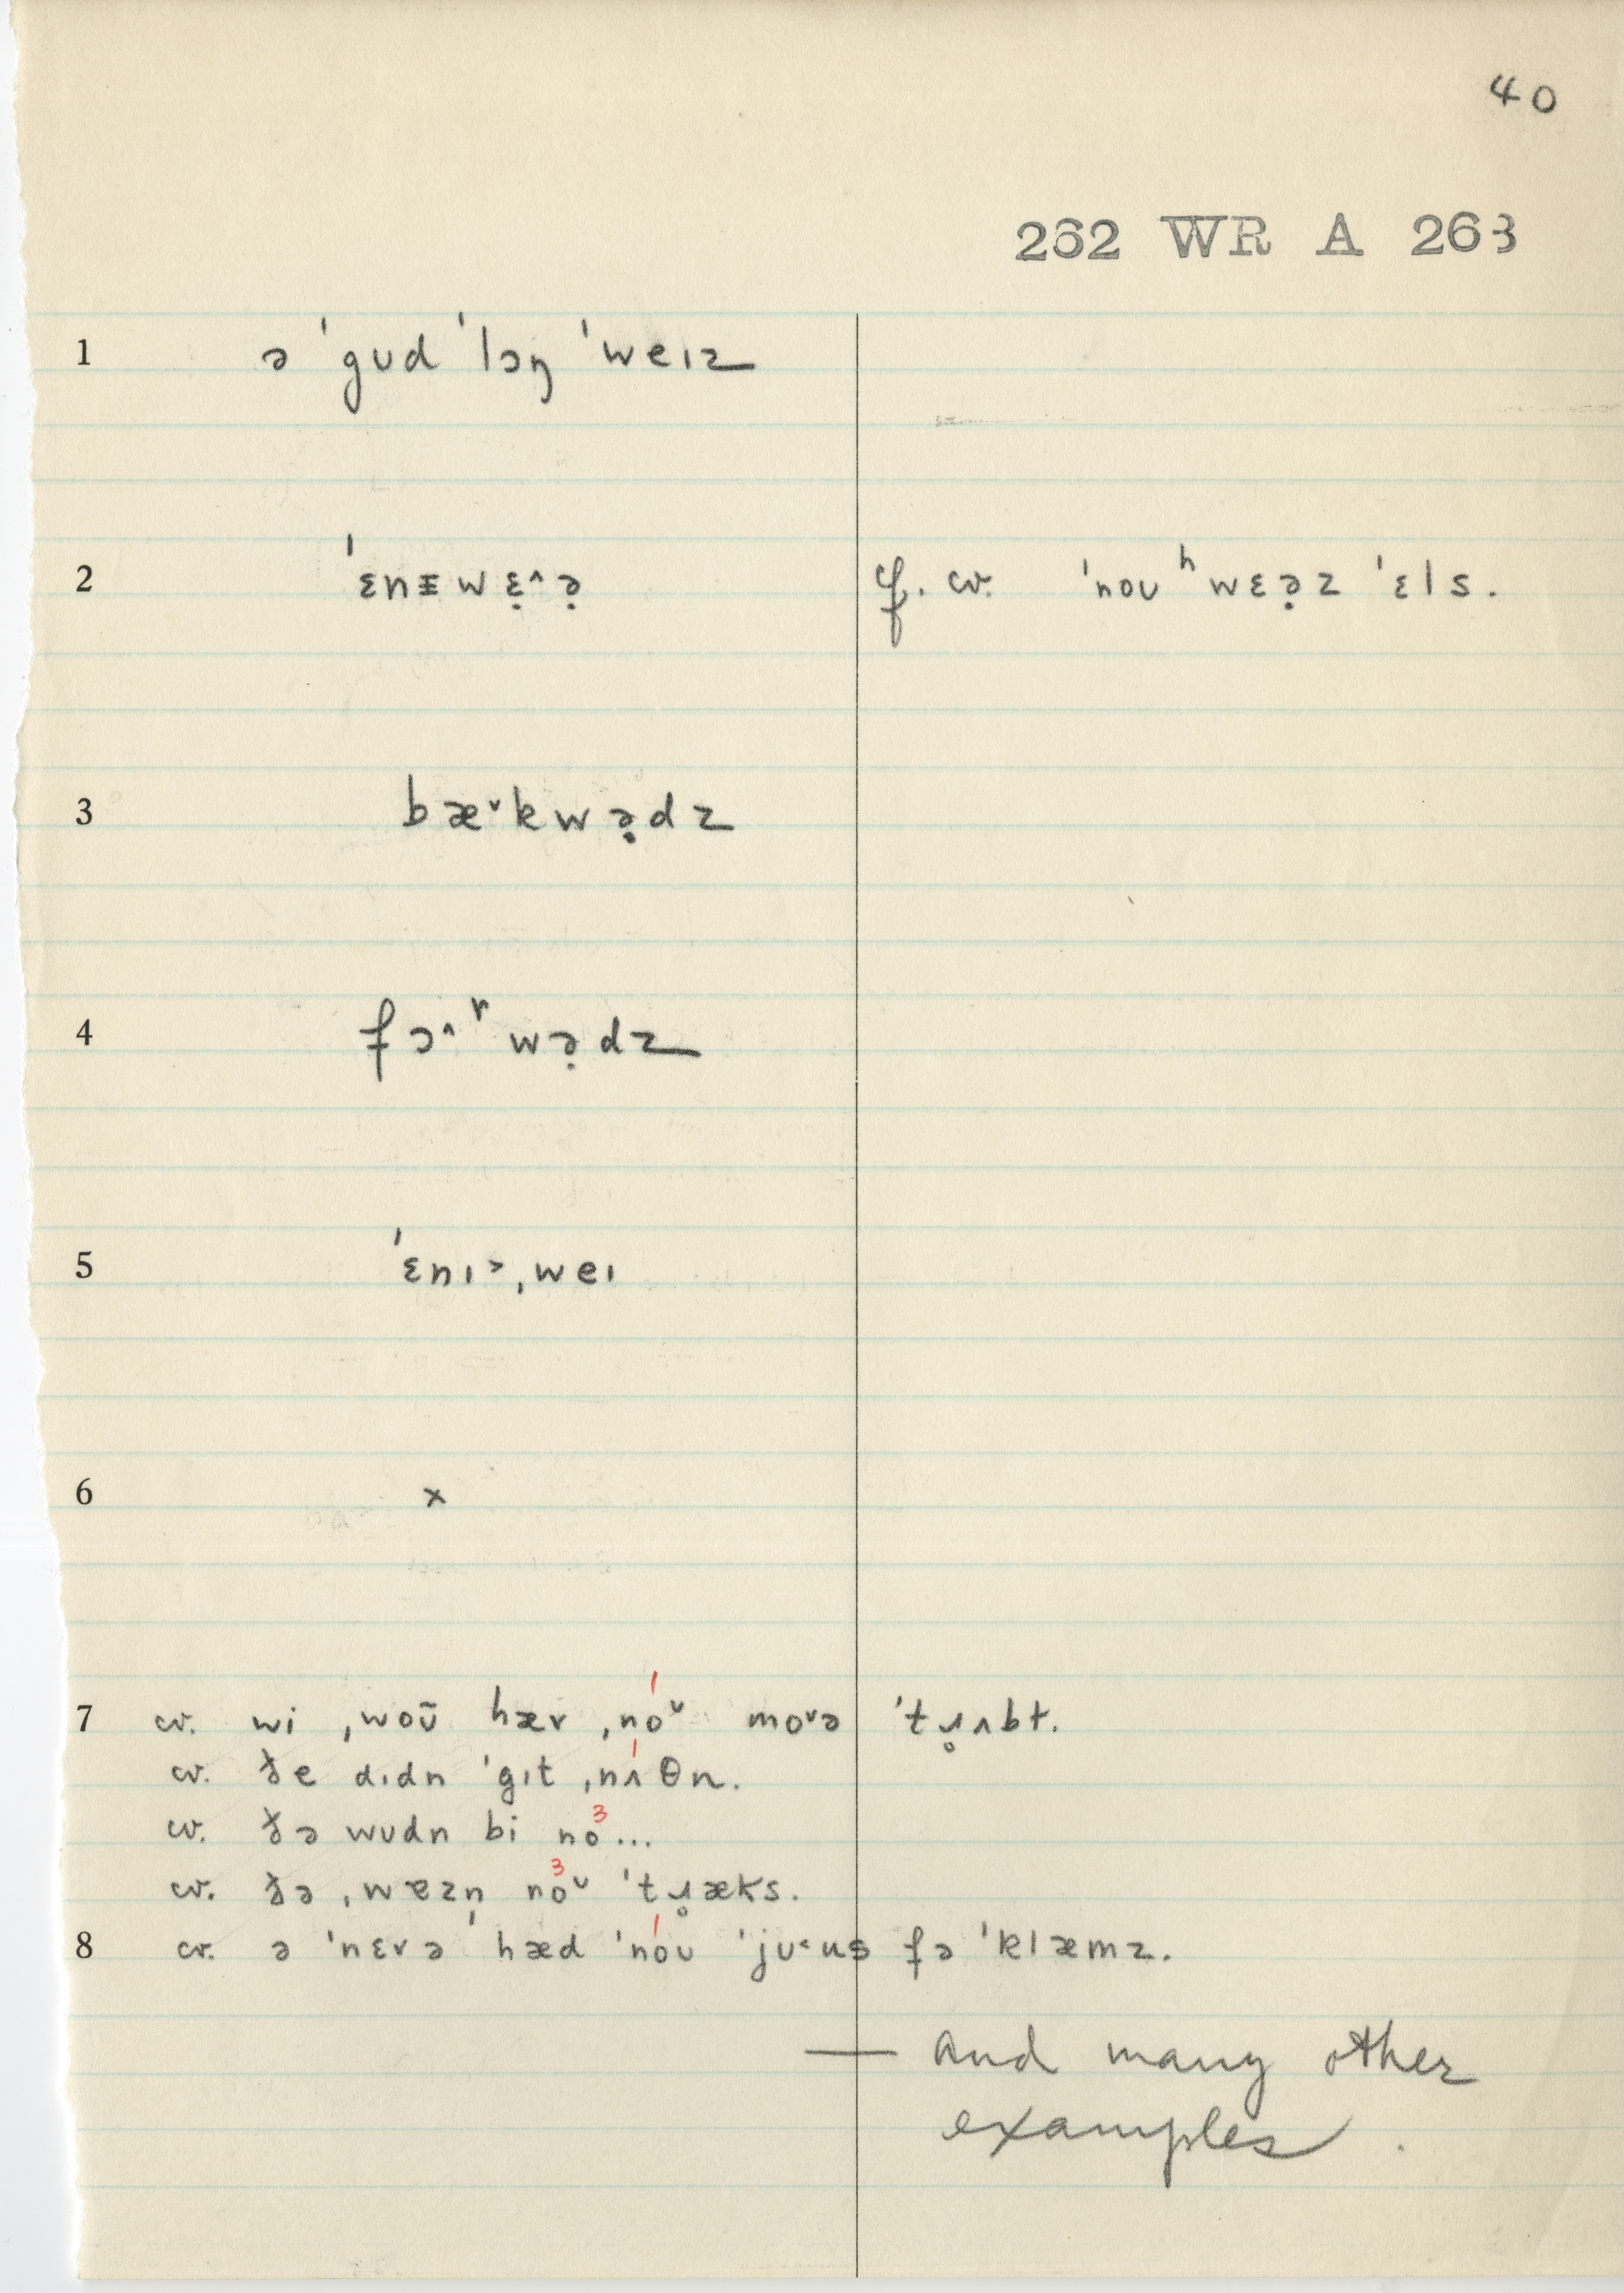 40
262 WR A 263
1 ə ˈgʊd ˈlɔŋ ˈweɪz
2 ˈɛnɪwɛ̣^ə̣ cf. cv. ˈnoʊ ʰwɛə̣z ˈɛls.
3 bæ˅kwə̣dz
4 fɔ^ʳwə̣dz
5 ˈɛnɪ˃ˌweɪ
6 ×
7 cv. wi ˌwoʊ̃ hæv ˌno˅ mo˅ə ˈtɹ̥ʌbt.
cv. ðe dɪdn ˈgɪt ˌnʌθn.
cv. ðə wʊdn bi no3...
cv. ðə ˌwɐzn̩ no3˅ ˈtɹ̥æks.
8 cv. ə ˈnɛvəˈ hæd ˈnoʊ ˈjʊ˂us fə ˈklæmz.
— and many other
examples.